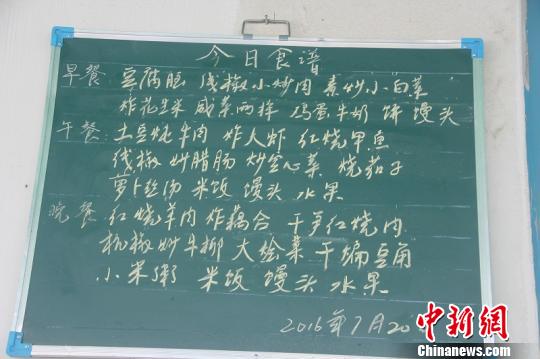 今日食谱
早餐: 豆腐脑 线椒小炒肉 素炒小白菜
炸花生米 咸菜两样 鸡蛋 牛奶 饼 馒头
午餐: 土豆炖牛肉 炸大虾 红烧甲鱼
线椒炒腊肠 炒空心菜 烧茄子
萝卜丝汤 米饭 馒头 水果
晚餐 红烧羊肉 炸藕合 干笋红烧肉
杭椒炒牛柳 大烩菜 干编豆角
小米粥 米饭 馒头 水果
2016年7月20
中新网
Chinanews.com